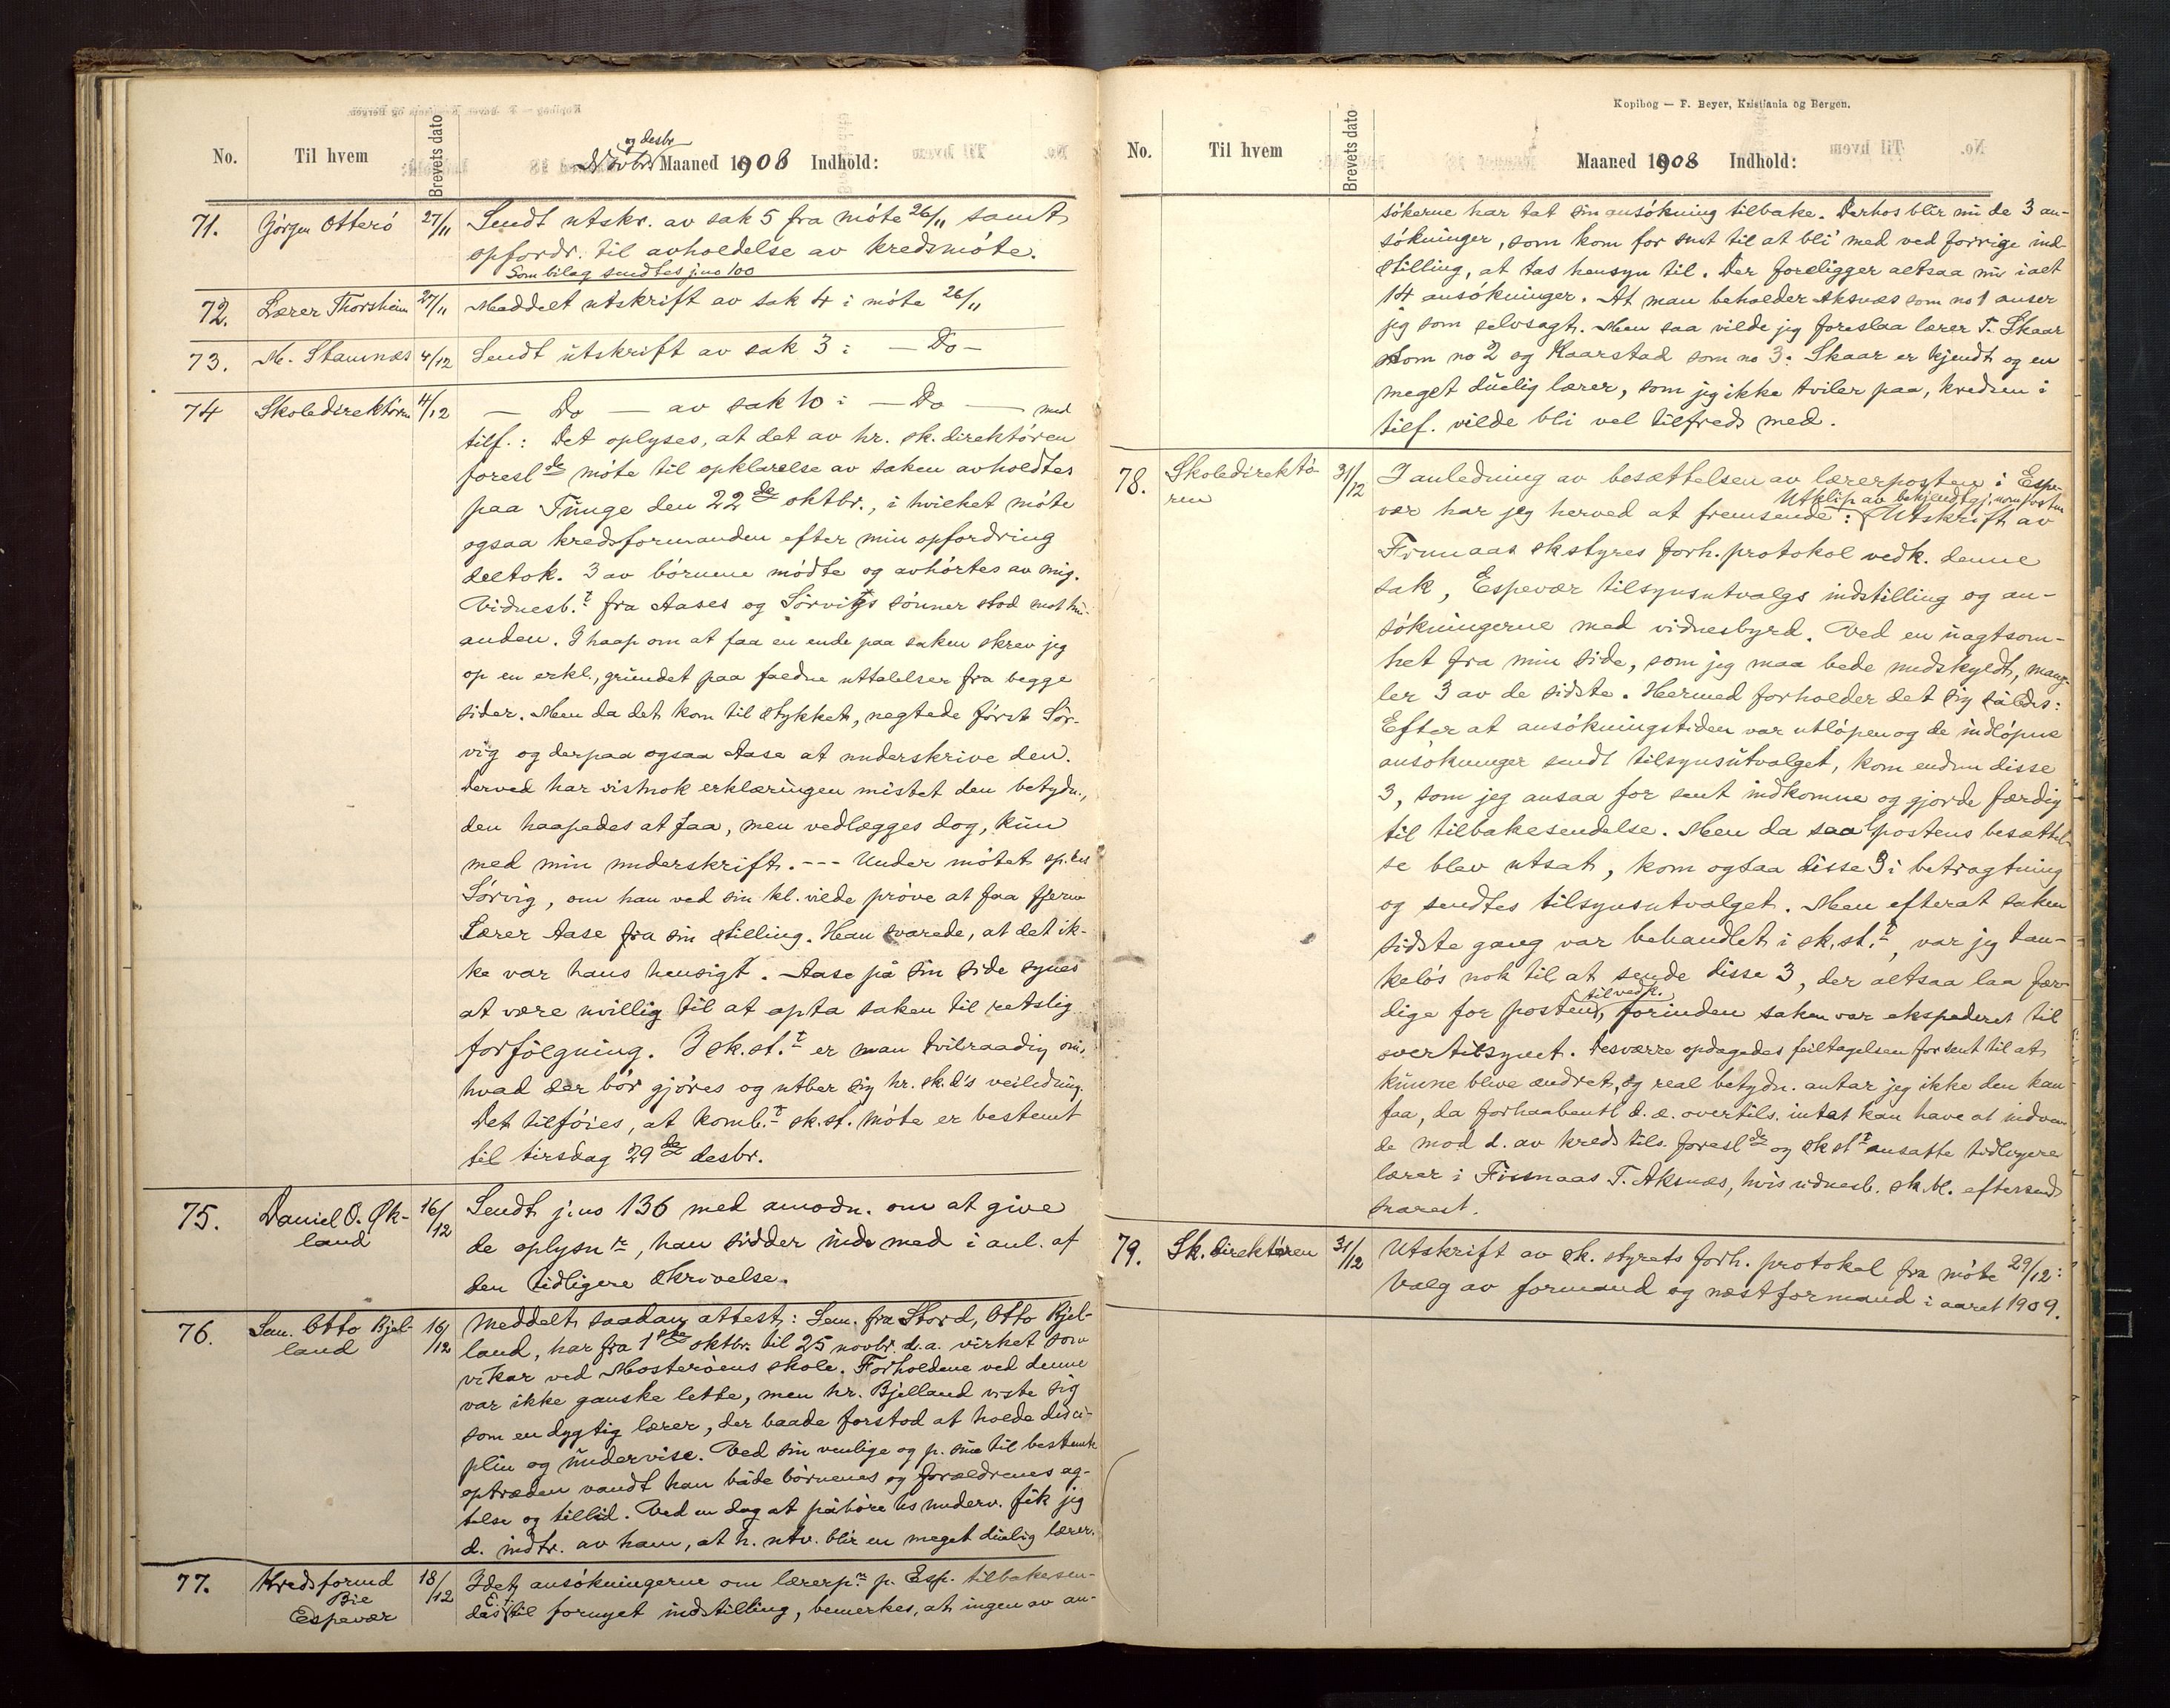 No.
Til hvem
Brevets dato
Novbr og desbr Maaned 1908 Indhold:
71. Jörgen Otterö 27/11 Sendt utskr. av sak 5 fra möte 26/11 samt
opfordr. til avholdelse av kredsmöte.
Som bilag sendtes jno 100
72. Lærer Thorsheim 27/11 Meddelt utskrift av sak 4 i möte 26/11
73. M. Stamnæs 4/12 Sendt utskrift av sak 3 i — Do —
74 Skoledirektören 4/12 — Do — av sak 10 i — Do — med
tilf.: Det oplyses, at det av hr. sk. direktören
foresl de möte til opklarelse av saken avholdtes
paa Tunge den 22de oktbr., i hvilket möte
ogsaa kredsformanden efter min opfordring
deltok. 3 av börnene mödte og avhörtes av mig.
Vidnesb. t fra Aases og Sörvigs sönner stod mot hin-
anden. I haap om at faa en ende paa saken skrev jeg
op en erkl., grundet paa faldne uttalelser fra begge
sider. Men da det kom til stykket, negtede först Sör-
vig og derpaa ogsaa Aase at underskrive den.
Derved har vistnok erklæringen mistet den betydn.,
den haapedes at faa, men vedlægges dog, kun
med min underskrift. --- Under mötet sp. tes
Sörvig, om han ved sin kl. vilde pröve at faa fjern
Lærer Aase fra sin stilling. Han svarede, at det ik-
ke var hans hensigt. Aase på sin side synes
at være uvillig til at opta saken til retslig
forfölgning. I sk. st. t er man tvilraadig om,
hvad der bör gjöres og utber sig hr. sk. d's veiledning.
Det tilföies, at komb. t sk. st. möte er bestemt
til tirsdag 29de desbr.
75. Daniel O. Øk- 16/12 Sendt j.no 136 med anodn. om at give
land de oplysn r, han sidder inde med i anl. af
den tidligere skrivelse.
76. Sem. Otto Bjel- 16/12 Meddelt saadan attest: Sem. fra Stord, Otto Bjel-
land land, har fra 1ste oktbr. til 25 novbr. d.a. virket som
vikar ved Mosteröens skole. Forholdene ved denne
var ikke ganske lette, men hr. Bjelland viste sig
som en dygtig lærer, der baade forstod at holde disci-
plin og undervise. Ved sin venlige og p. sine til bestemte
optræden vandt han både börnenes og forældrenes ag-
telse og tillid. Ved en dag at påhöre hs underv. fik jeg
d. indtr. av ham, at h. utv. blir en meget duelig lærer.
77. Kredsformd 18/12 Idet ansökningerne om lærerp. n p. Esp. tilbakesen-
Bie des E. t. til fornyet indstilling, bemerkes, at ingen av an-
Espevær
Kopibog — F. Beyer, Kristiania og Bergen.
No.
Til hvem
Brevets dato
Maaned 1908 Indhold:
sökerne har tat sin ansökning tilbake. Derhos blir nu de 3 an-
sökninger, som kom for sent til at bli med ved forrige ind-
stilling, at tas hensyn til. Der foreligger altsaa nu ialt
14 ansökninger. At man beholder Aksnæs som no 1 anser
jeg som selvsagt. Men saa vilde jeg foreslaa lærer T. Skaar
som no 2 og Kaarstad som no 3. Skaar er kjendt og en
meget duelig lærer, som jeg ikke tviler paa, kredsen i
tilf. vilde bli vel tilfreds med.
78. Skoledirektö- 31/12 I anledning av besættelsen av lærerposten i Espe-
ren vær har jeg herved at fremsende: Utklip av bekjendtgj. om posten Utskrift av
Finnaas skstyres forh. protokol vedk. denne
sak, Espevær tilsynsutvalgs indstilling og an-
sökningerne med vidnesbyrd. Ved en uagtsom-
het fra min side, som jeg maa bede undskyldt, mang-
ler 3 av de sidste. Hermed forholder det sig således:
Efter at ansökningstiden var utlöpen og de indlöpne
ansökninger sendt tilsynsutvalget, kom endnu disse
3, som jeg ansaa for sent indkomne og gjorde færdig
til tilbakesendelse. Men da saa postens besættel-
se blev utsat, kom ogsaa disse 3 i betragtning
og sendtes tilsynsutvalget. Men efterat saken
sidste gang var behandlet i sk. st. t, var jeg tan-
kelös nok til at sende disse 3, der altsaa laa fær-
dige for posten, til vedk. forinden saken var ekspederet til
overtilsynet. Desværre opdagedes feiltagelsen for sent til at
kunne blive ændret, og real betydn. antar jeg ikke den kan
faa, da forhaabentl d. æ. overtils. intet kan have at indven-
de mod d. av kreds tils. foresl de og sk st t ansatte tidligere
lærer i Finnaas T. Aksnæs, hvis vidnesb. sk. bl. eftersendt
snarest.
79. Sk. direktören 31/12 Utskrift av sk. styrets forh. protokol fra möte 29/12:
Valg av formand og næstformand i aaret 1909.